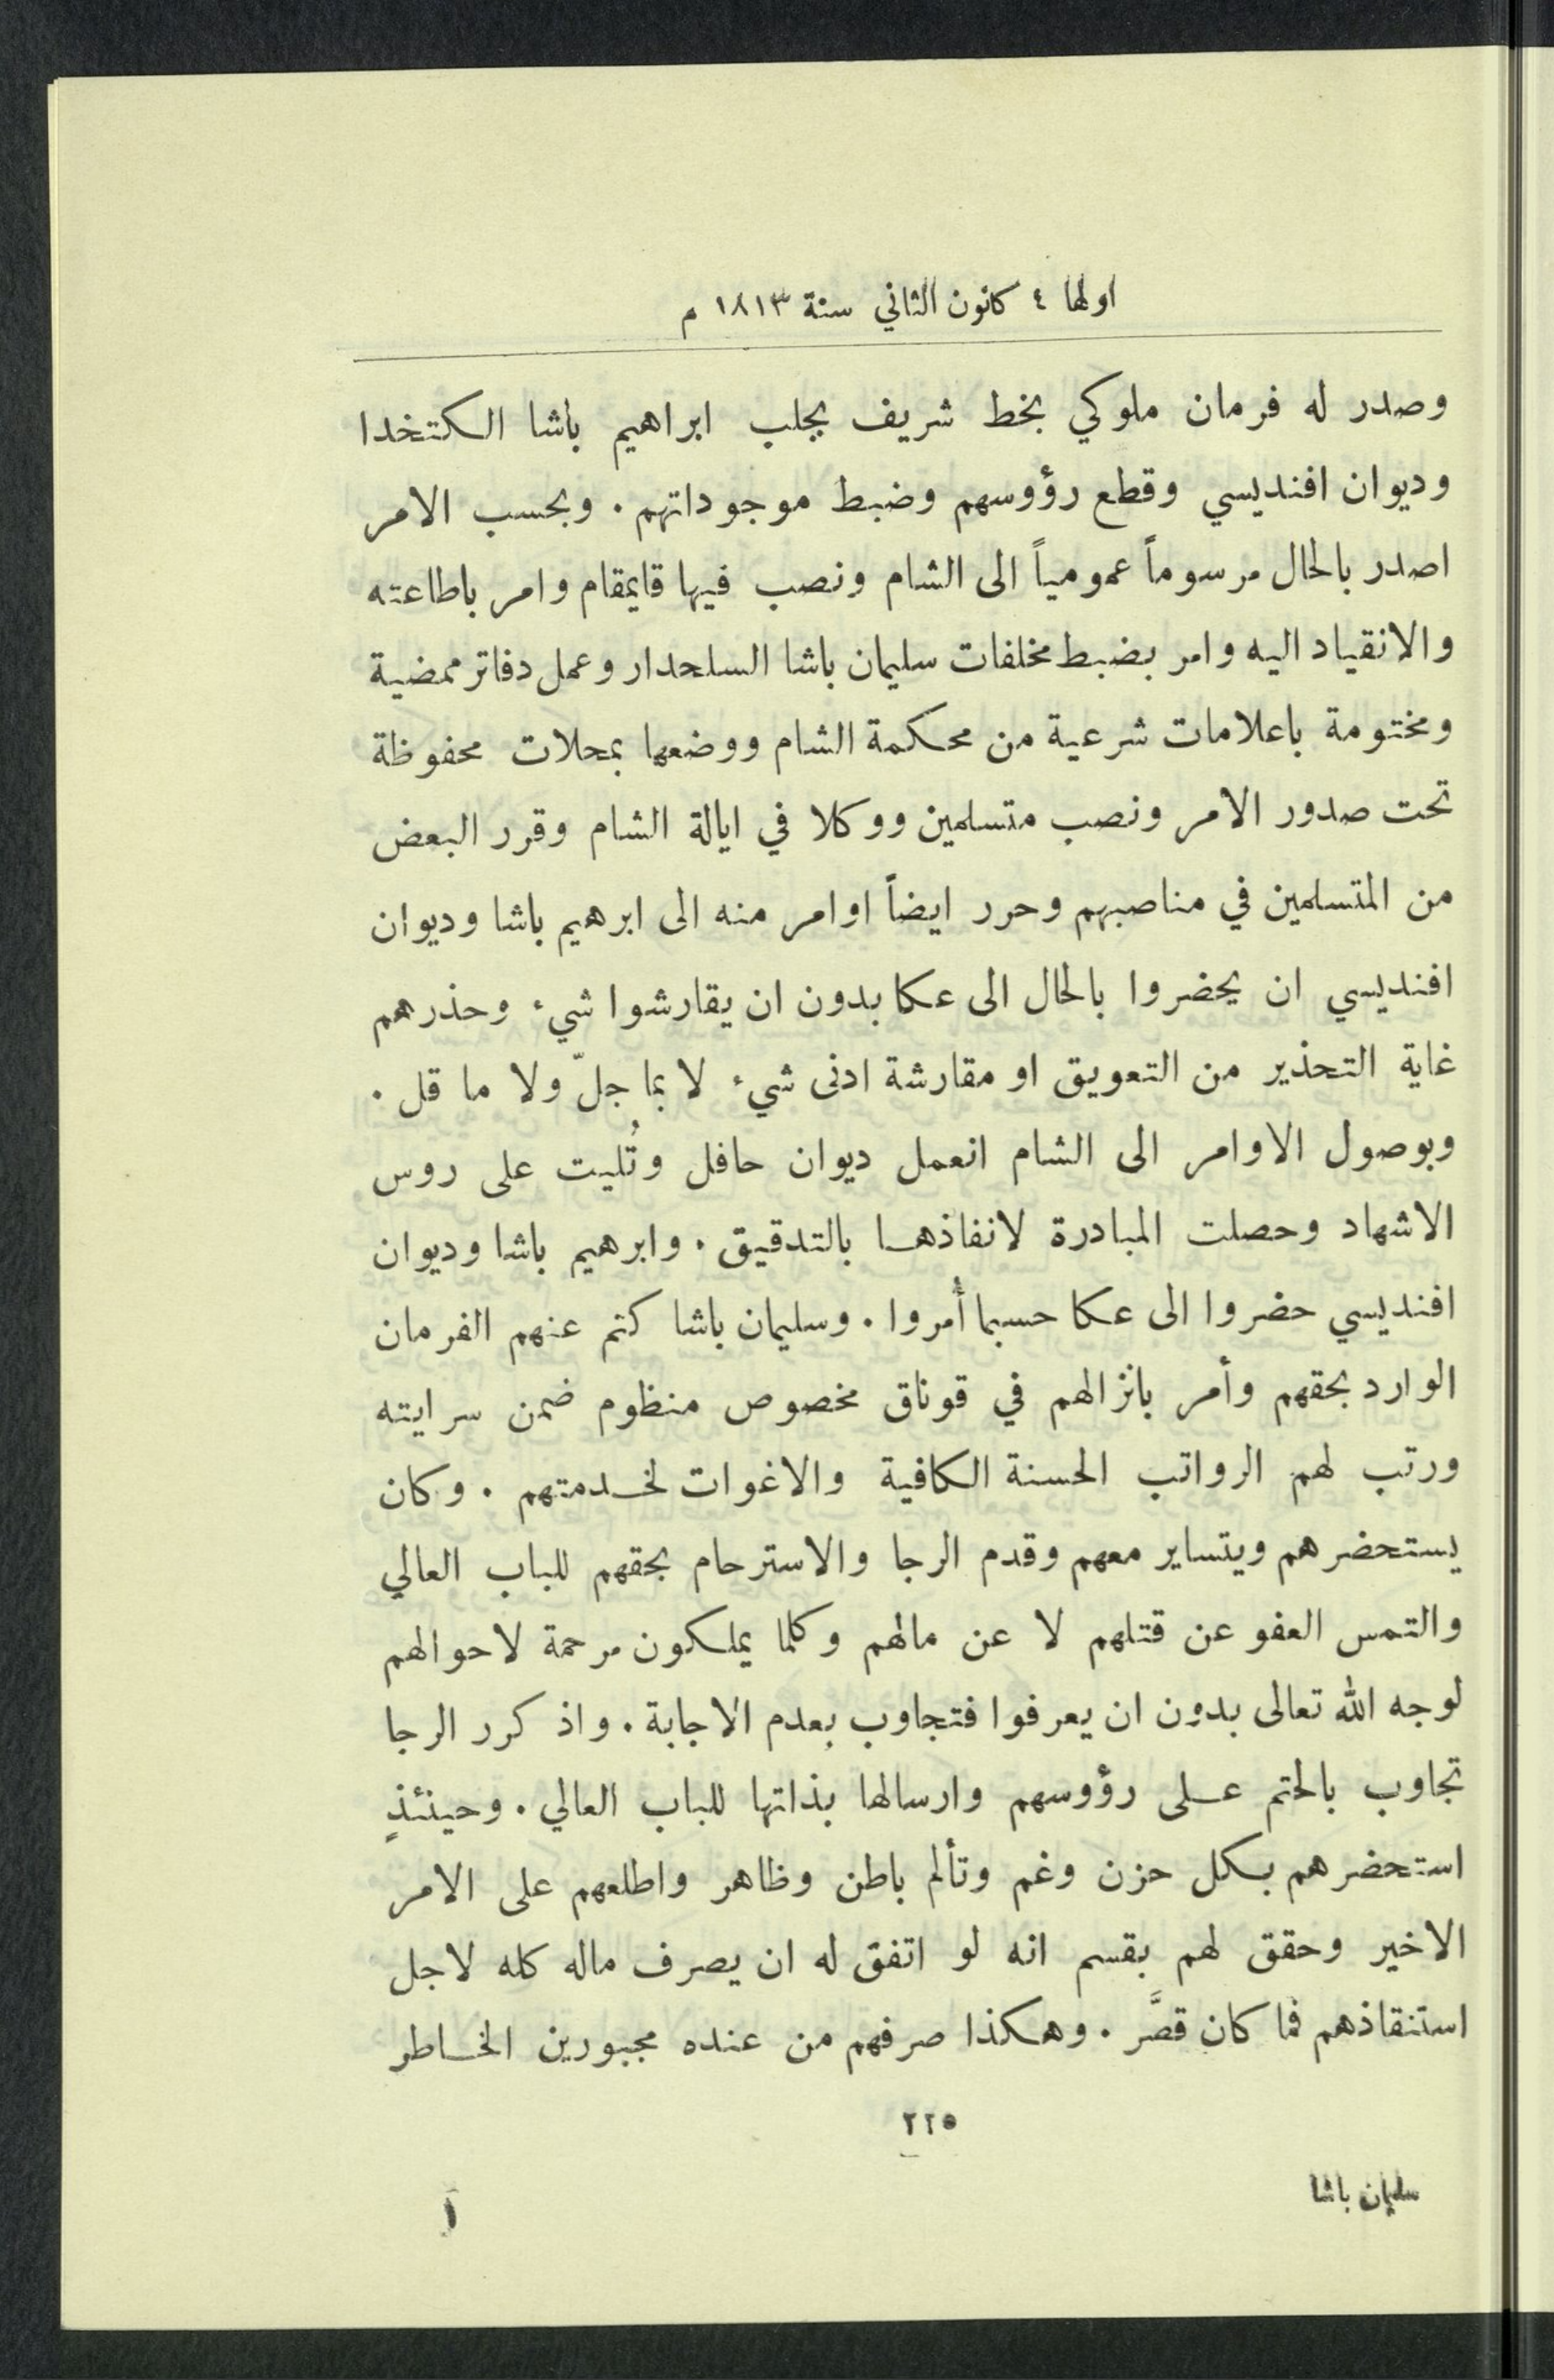 اولها ٤ كانون الثاني سنة ١٨١٣ م
وصدر له فرمان ملوكي بخط شريف بجلب ابراهيم باشا الكتخدا
وديوان افنديسي وقطع رؤوسهم وضبط موجوداتهم . وبحسب الامر
اصدر بالحال مرسوماً عمومياً الى الشام ونصب فيها قايمقام وامر باطاعته
والانقياد اليه وامر بضبط مخلفات سليمان باشا السلحدار وعمل دفاتر ممضية
ومختومة باعلامات شرعية من محكمة الشام ووضعها بمحلات محفوظة
تحت صدور الامر ونصب متسلمين ووكلا في ايالة الشام وقرر البعض
من المتسلمين في مناصبهم وحرر ايضاً اوامر منه الى ابرهيم باشا وديوان
افنديسي ان يحضروا بالحال الى عكا بدون ان يقارشوا شيء وحذرهم
غاية التحذير من التعويق او مقارشة ادنى شيء لا بما جلّ ولا ما قل .
وبوصول الاوامر الى الشام انعمل ديوان حافل وتُليت على روس
الاشهاد وحصلت المبادرة لانفاذها بالتدقيق . وابرهيم باشا وديوان
افنديسي حضروا الى عكا حسبما أُمروا . وسليمان باشا كتم عنهم الفرمان
الوارد بحقهم وأمر بانزالهم في قوناق مخصوص منظوم ضمن سرايته
ورتب لهم الرواتب الحسنة الكافية والاغوات لخدمتهم . وكان
يستحضرهم ويتساير معهم وقدم الرجا والاسترحام بحقهم للباب العالي
والتمس العفو عن قتلهم لا عن مالهم وكلما يملكون مرحمة لاحوالهم
لوجه الله تعالى بدون ان يعرفوا فتجاوب بعدم الاجابة . واذ كرر الرجا
تجاوب بالحتم على رؤوسهم وارسالها بذاتها للباب العالي . وحينئذٍ
استحضرهم بكل حزن وغم وتألم باطن وظاهر واطلعهم على الامر
الاخير وحقق لهم بقسم انه لو اتفق له ان يصرف ماله كله لاجل
استنقاذهم فما كان قصَّر . وهكذا صرفهم من عنده مجبورين الخاطر
٢٢٥
سليمان باشا